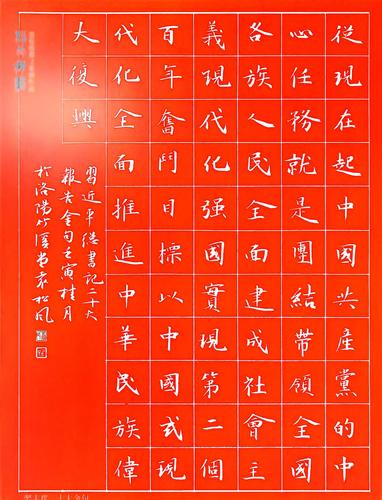 從現在起中國共產黨的中
心任務就是團結帶領全國
各族人民全面建成社會主
義現代化強國實現第二個
百年奮鬥目標以中國式現
代化全面推進中華民族偉
大復興
習近平總書記二十大
報告金句壬寅桂月
於洛陽竹溪堂袁松風